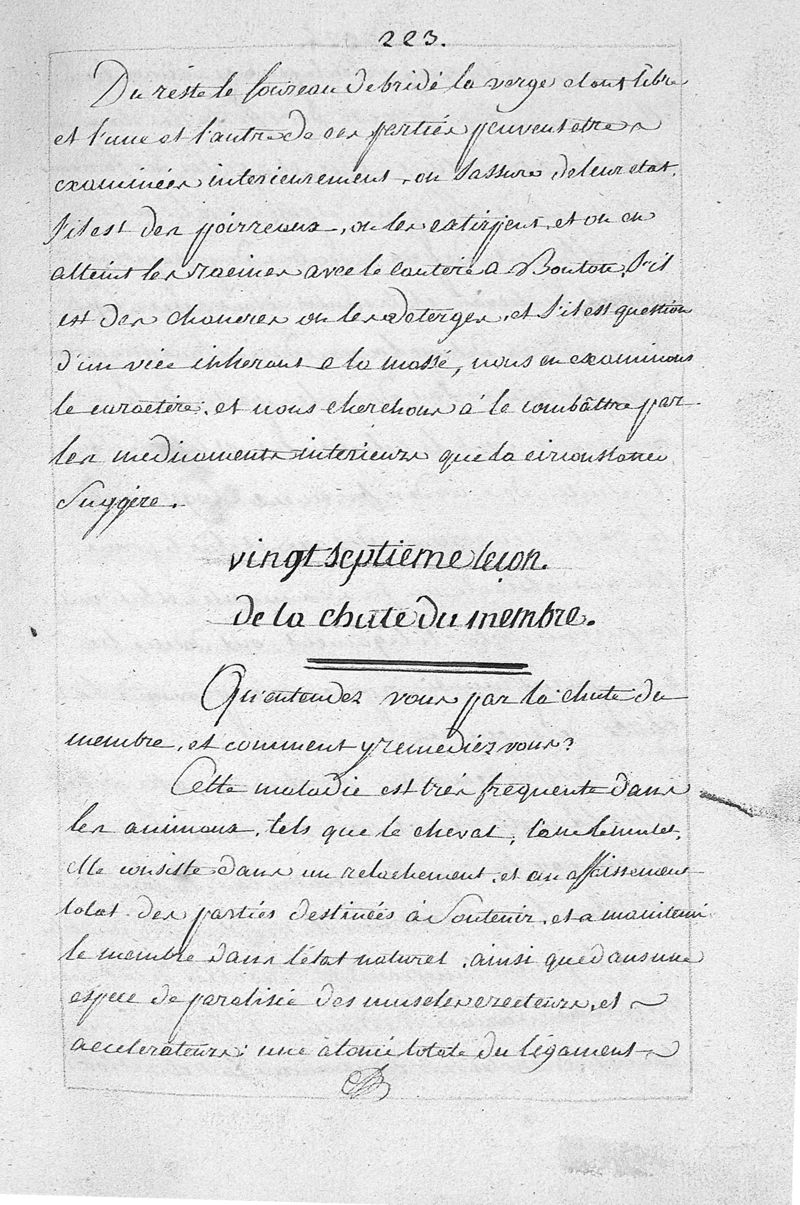 223.
Du reste le foureau debridé la verge etant libre
et l'une et l'autre de ces parties peuvent etre
examinées interieurement, on s'assure de leur etat.
s'il est des poirreaux, on les extirpent, et on en
atteint les racines avec le cautere a Bouton, s'il
est des chancres on les deterges, et s'il est question
d'un vice inherant a la masse, nous en examinons
le caractère, et nous cherchons à le combâttre par
les medicaments interieurs que la circonstance
Suggère.
vingt septième leçon.
de la chute du membre.
Qu'entendez vous par la chute du
membre, et comment y remediez vous?
Cette maladie est très frequente dans
les animaux, tels que le cheval, l'ane le mulet,
elle consiste dans un relachement, et an affaissement
total des parties destinées à soutenir, et a maintenir
le membre dans l'état naturel, ainsi que dans une
espece de paralisie des muscles erecteurs, et
accelerateurs; une atonie totale du ligament